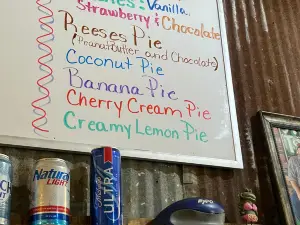 Vanilla.
Strawberry & Chocolate
Reeses Pie
(Peanut butter and Chocolate)
Coconut Pie
Banana Pie
Cherry Cream Pie
Creamy Lemon Pie
Natural
LIGHT
ULTRA